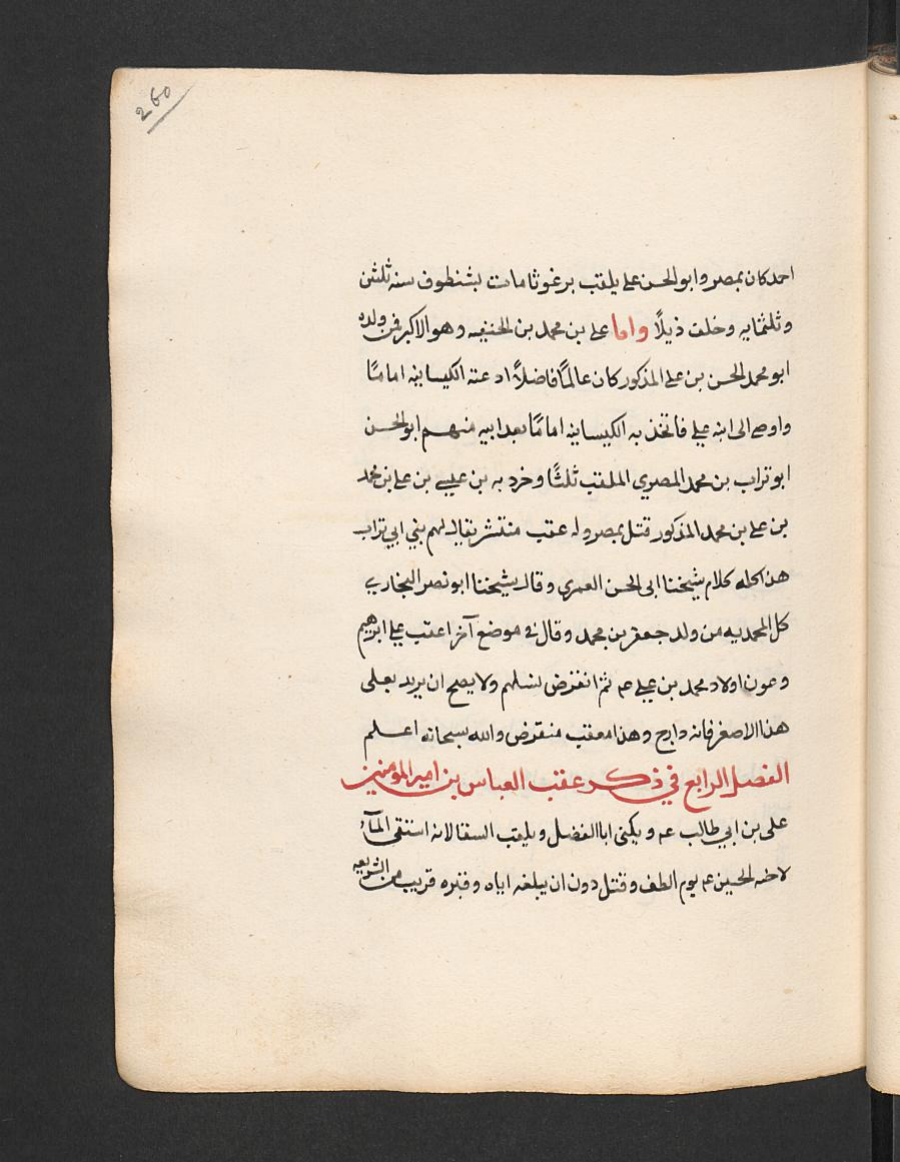 260
احمد كان بمصر وابو الحسن على يلقب برغوثا مات بشنطوف سنه ثلثن
وثلثمايه وخلف ذيلًا واما على بن محمد بن الحنيفه وهو الاكبر فمن ولده
ابو محمد الحسن بن على المذكور كان عالمًا فاضلاً ادعته الكيسانيه امامًا
واوصى الى ابنه على فاتخذ به الكيسانيه امامًا بعد ابيه منهم ابو الحسن
ابو تراب بن محمد المصرى الملقب ثلثًا وخرد به بن عيسى بن على بن محمد
بن على بن محمد المذكور قتل بمصر وله عقب منتشر يقال لهم بني ابي تراب
هذا كله كلام شيخنا ابى الحسن العمري وقال شيخنا ابو نصر البخارى
كل المحمديه من ولد جعفر بن محمد وقال في موضع آخر اعقب على ابرهيم
وعون اولاد محمد بن على عم ثم انقرض نسلهم ولا يصح ان يريد بعلى
هذا الاصغر فانه دارج وهذا معقب منقرض والله سبحانه اعلم
الفصل الرابع في ذكر عقب العباس بن امير المومنين
على بن ابي طالب عم ويكنى ابا الفضل ويلقب السقا لانه استقى المآء
لاخيه الحسين عم يوم الطف وقتل دون ان يبلغه اياه وقبره قريب من الشريعه